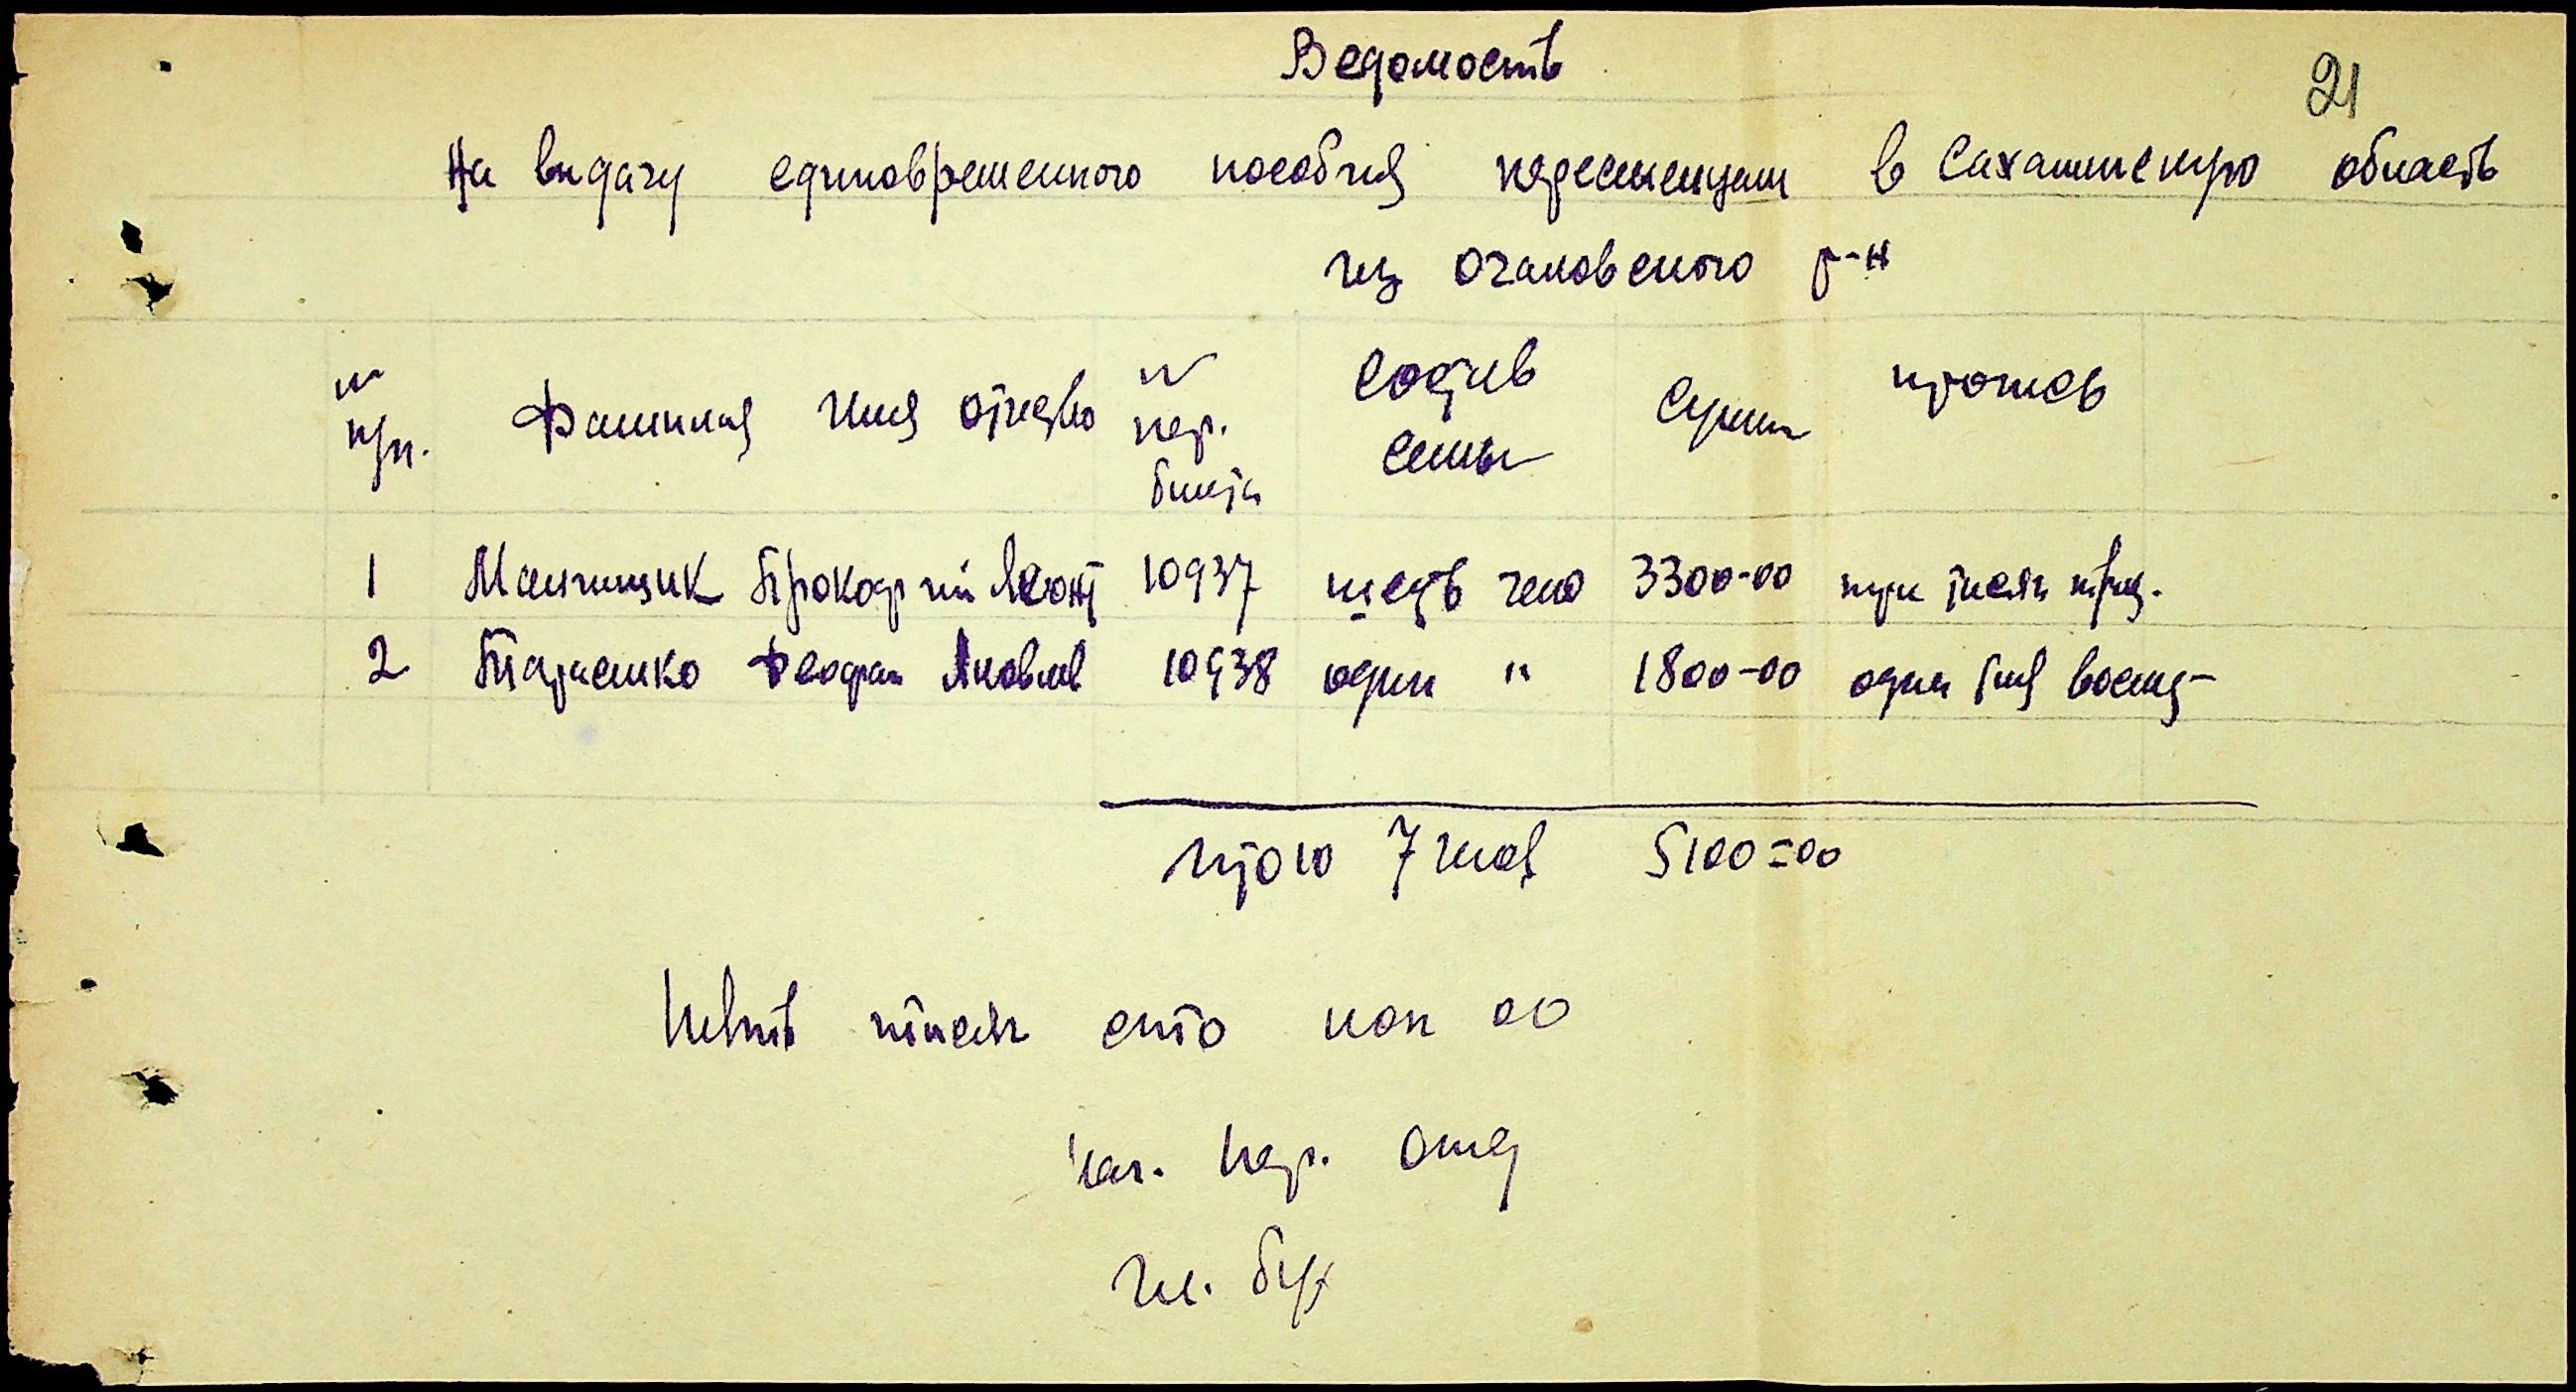 Ведомость
21
На выдачу единовременного пособия переселенцам в Сахалинскую область
из Очаковского р-н
№ п/п. Фамилия Имя Отчество № пер. билета Состав семьи Сумма прописью
1 Прокофий Леонт 10937 шесть чело 3300-00 три тысячи трис.
2 Тарасенко Феофан Яковлев 10938 один " 1800-00 один тыс восем-
Итого 7 чел 5100=00
Пять тысяч сто коп 00
Нач. Пер. Отд
Гл. бух